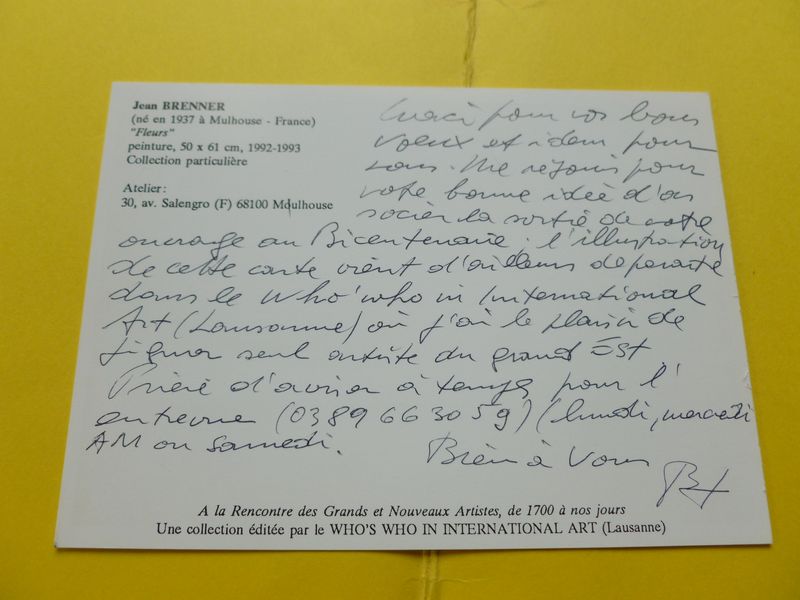 Jean BRENNER
(né en 1937 à Mulhouse - France)
"Fleurs"
peinture, 50 x 61 cm, 1992-1993
Collection particulière
Atelier:
30, av. Salengro (F) 68100 Moulhouse
Merci pour vos bons
voeux et idem pour
vous. Me réjouis pour
votre bonne idée d'as
socier la sortie de votre
ouvrage au Bicentenaire. l'illustration
de cette carte vient d'ailleurs de paraître
dans le Who'who in International
Art (Lausanne) où j'ai le plaisir de
figurer seul artiste du grand Est.
Prière d'aviser à temps pour l'
entrevue (0389663059) (lundi, mercredi
AM ou samedi.
Bien à Vous
A la Rencontre des Grands et Nouveaux Artistes, de 1700 à nos jours
Une collection éditée par le WHO'S WHO IN INTERNATIONAL ART (Lausanne)